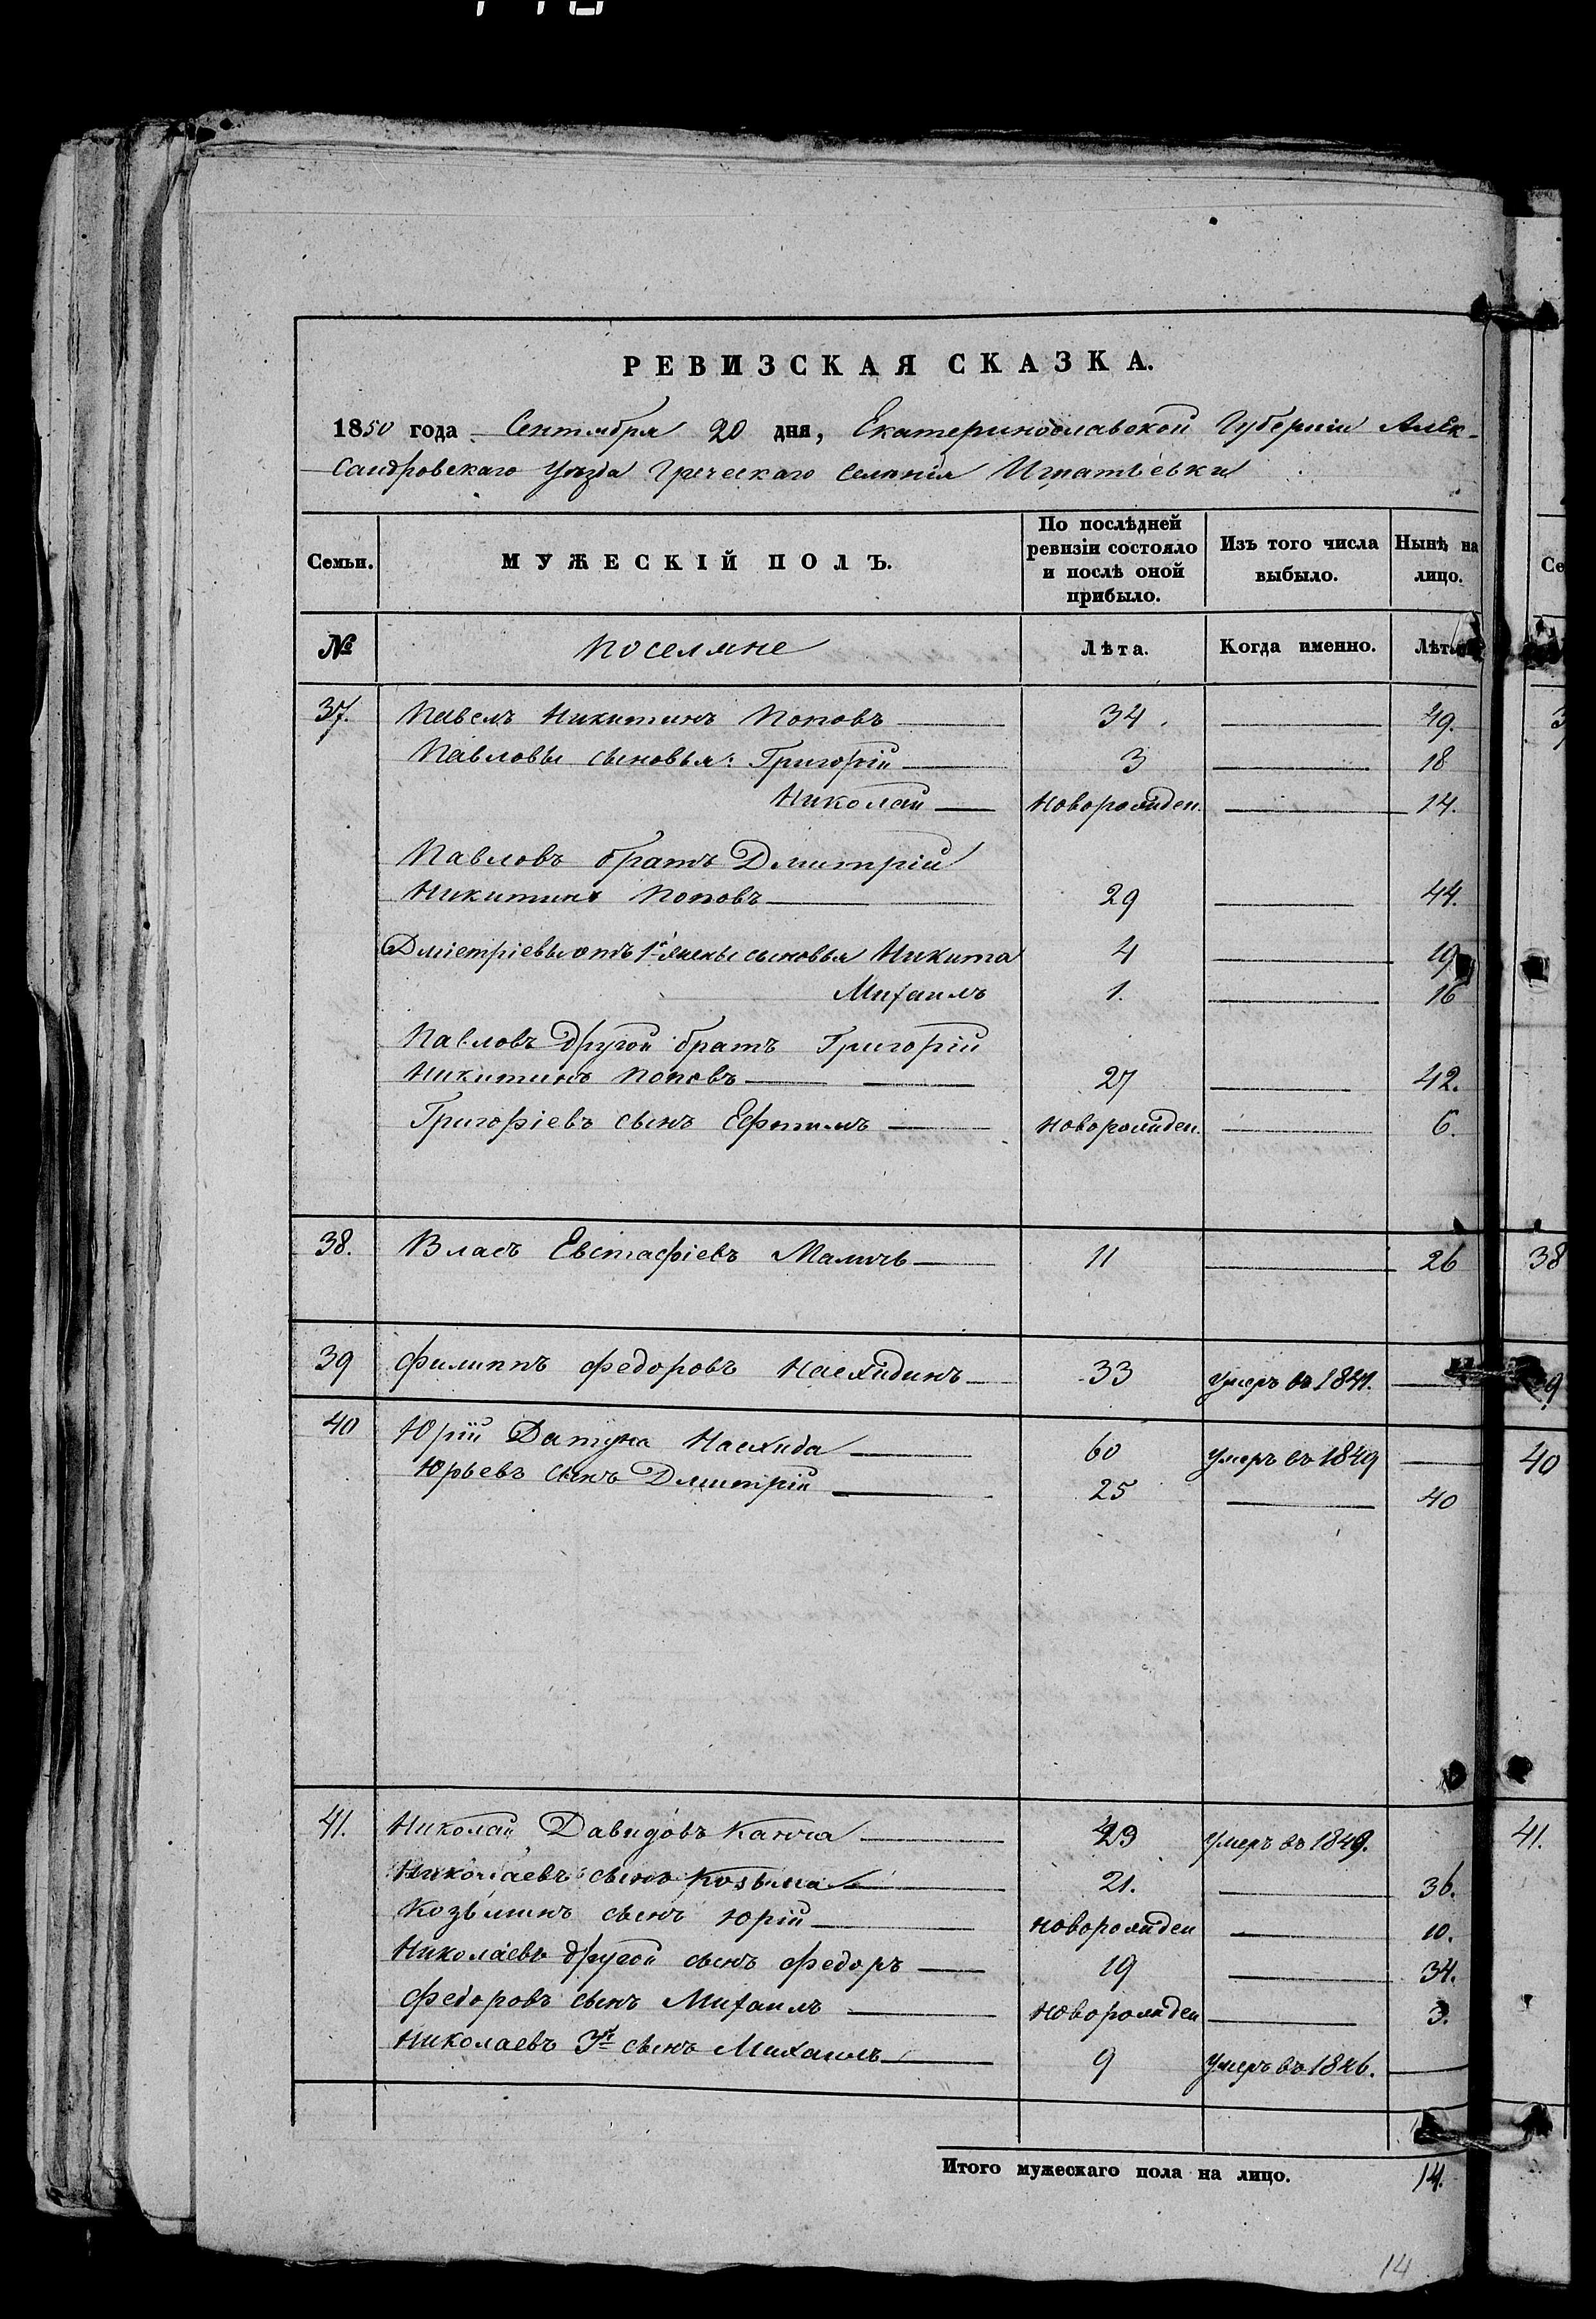 РЕВИЗСКАЯ СКАЗКА.
1850 года Сентября 20 дня, Екатеринославской Губернии Алек-
сандровскаго Уѣзда Греческаго селенія Игнатьевки
Семьи. МУЖЕСКІЙ ПОЛЪ. По послѣдней ревизіи состояло и послѣ оной прибыло. Изъ того числа выбыло. Нынѣ на лицо.
№ Поселяне Лѣта. Когда именно. Лѣта
37. Павелъ Никитинъ Поповъ 34. 49.
Павловы сыновья: Григорій 3 18
Николай новорожден. 14.
Павловъ братъ Дмитрій
Никитинъ Поповъ 29 44.
Дмитріевы отъ 1й жены сыновья Никита 4 19
Михаилъ 1. 16
Павловъ другой братъ Григорій
Никитинъ Поповъ 27 42.
Григорьевъ сынъ Ефтимъ новорожден. 6.
38. Власъ Евстафіевъ 11 26 38
39 Филиппъ Федоровъ 33 умеръ въ 1841. 39
40 Юрій Насхида 60 умеръ въ 1849 40
Юрьевъ сынъ Дмитрій 25 40
41. Николай Давидовъ 49 умеръ въ 1849. 41.
Николаевъ сынъ Козьма 21. 36.
Козьминъ сынъ Юрій новорожден 10.
Николаевъ другой сынъ Федоръ 19 34.
Федоровъ сынъ Михаилъ новорожден 3.
Николаевъ 3й сынъ Михаилъ 9 умеръ въ 1846.
Итого мужескаго пола на лицо. 14.
14